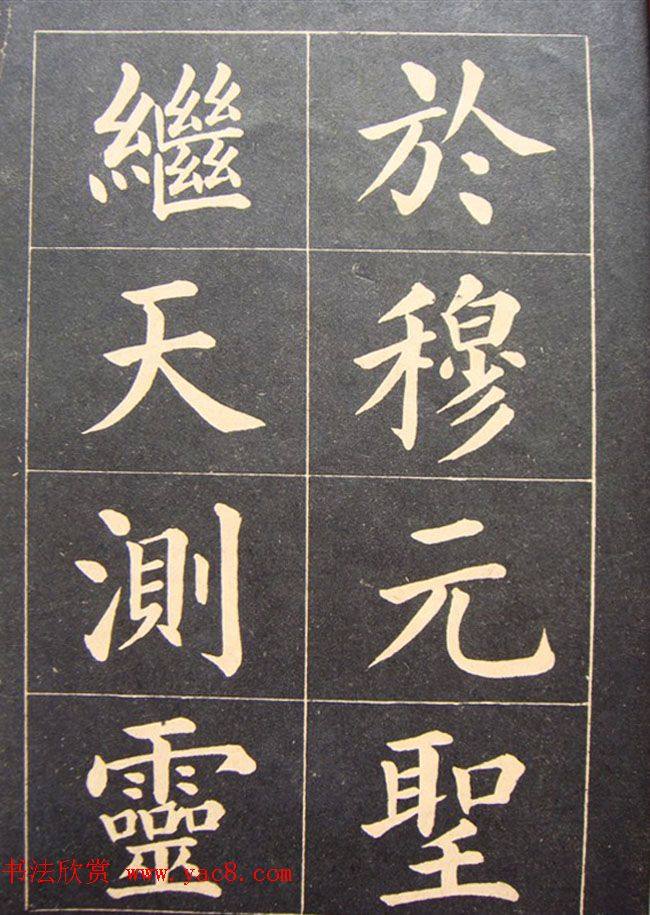 於穆元聖
繼天測靈
书法欣赏 www.yac8.com